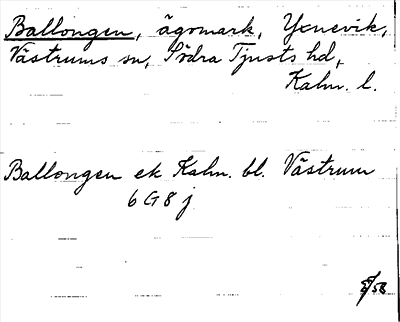 Ballongen, ägomark, Yxnevik,
Västrums sn, Södra Tjusts hd,
Kalm. l.
Ballongen ek Kalm. bl. Västrum
6 G 8 j